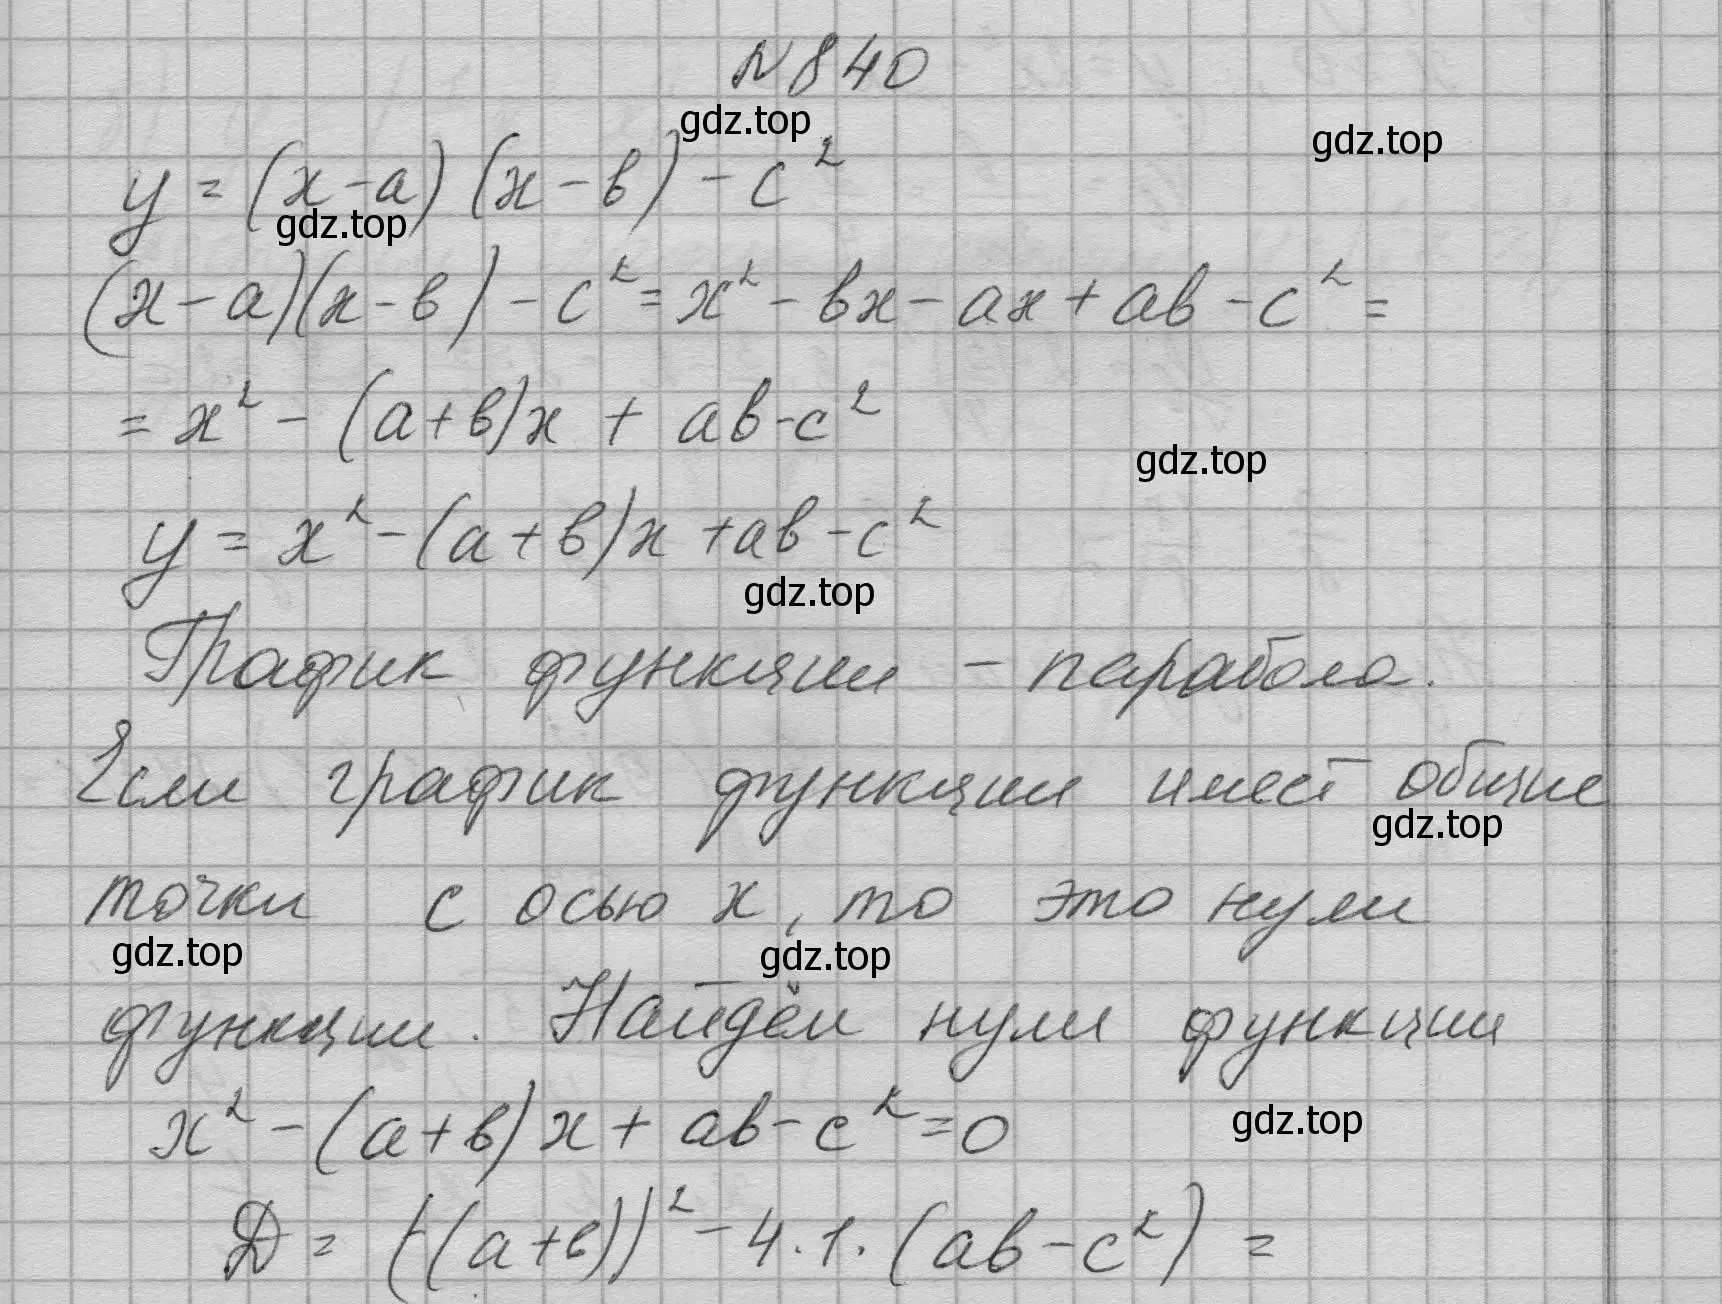 N 840
gdz.top
gdz.top
y = (x - a) (x - в) - c²
gdz.top
(x - a)(x - в) - c² = x² - вx - ax + aв - c² =
= x² - (a + в)x + aв - c²
gdz.top
y = x² - (a + в)x + aв - c²
gdz.top
График функции - парабола.
Если график функции имеет общие
gdz.top
точки с осью x, то это нули
gdz.top gdz.top
функции. Найдём нули функции
x² - (a + в)x + aв - c² = 0
gdz.top
Д = (-(a + в))² - 4 · 1 · (aв - c²) =